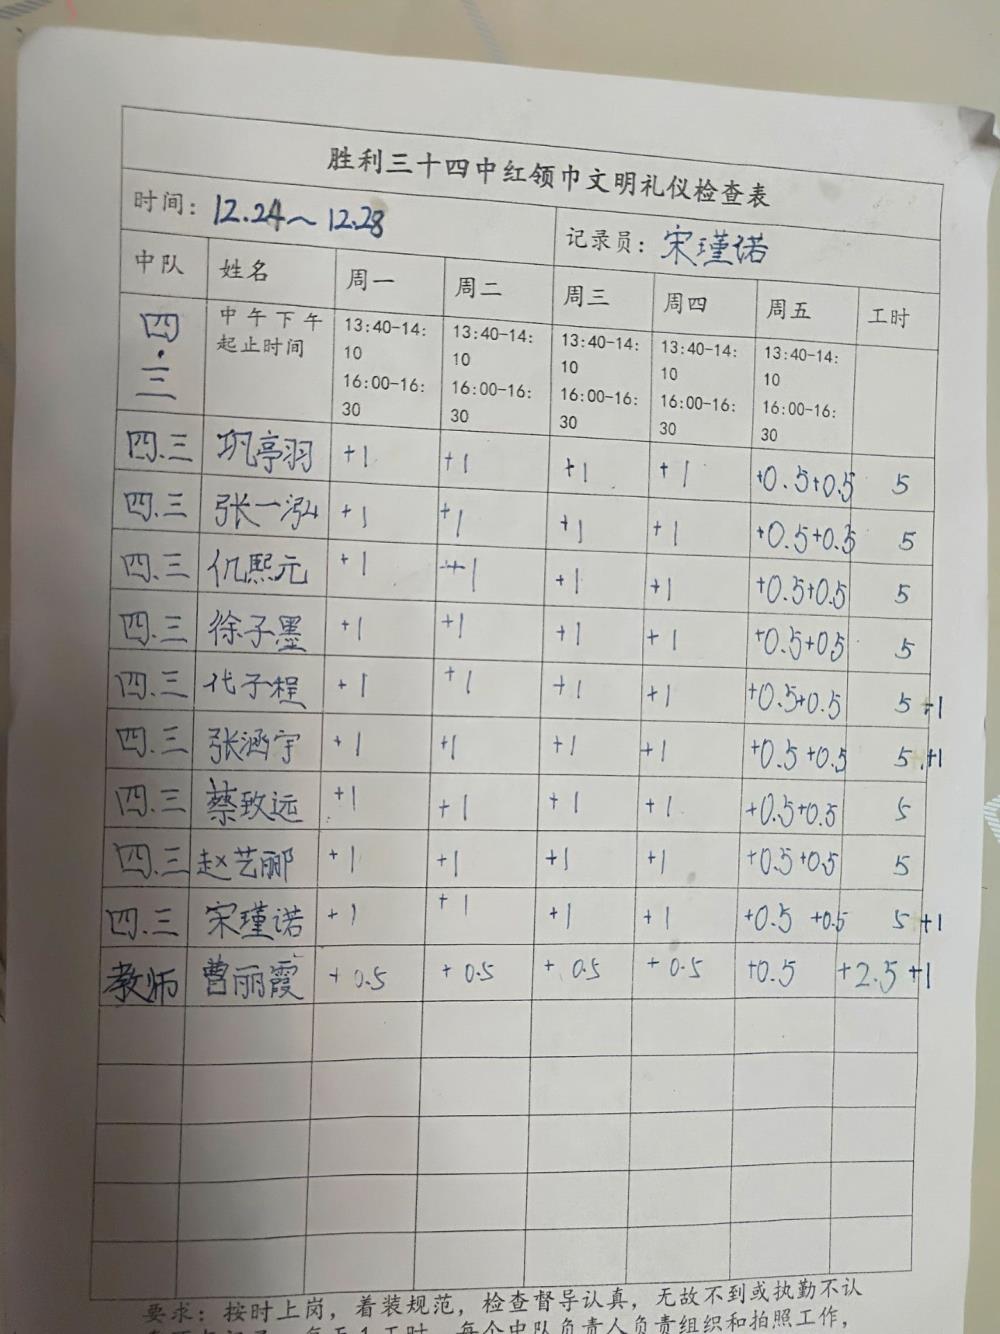 胜利三十四中红领巾文明礼仪检查表
时间: 12.24～12.28 记录员: 宋瑾诺
中队 姓名 周一 周二 周三 周四 周五 工时
四.三 中午下午起止时间 13:40-14:10 16:00-16:30 13:40-14:10 16:00-16:30 13:40-14:10 16:00-16:30 13:40-14:10 16:00-16:30 13:40-14:10 16:00-16:30
四.三 巩亭羽 +1 +1 +1 +1 +0.5+0.5 5
四.三 张一泓 +1 +1 +1 +1 +0.5+0.5 5
四.三 仉熙元 +1 +1 +1 +1 +0.5+0.5 5
四.三 徐子墨 +1 +1 +1 +1 +0.5+0.5 5
四.三 代子程 +1 +1 +1 +1 +0.5+0.5 5+1
四.三 张涵宇 +1 +1 +1 +1 +0.5+0.5 5+1
四.三 蔡致远 +1 +1 +1 +1 +0.5+0.5 5
四.三 赵艺郦 +1 +1 +1 +1 +0.5+0.5 5
四.三 宋瑾诺 +1 +1 +1 +1 +0.5 +0.5 5+1
教师 曹丽霞 +0.5 +0.5 +0.5 +0.5 +0.5 +2.5+1
要求: 按时上岗，着装规范，检查督导认真，无故不到或执勤不认
每天1工时，每个中队负责人负责组织和拍照工作，